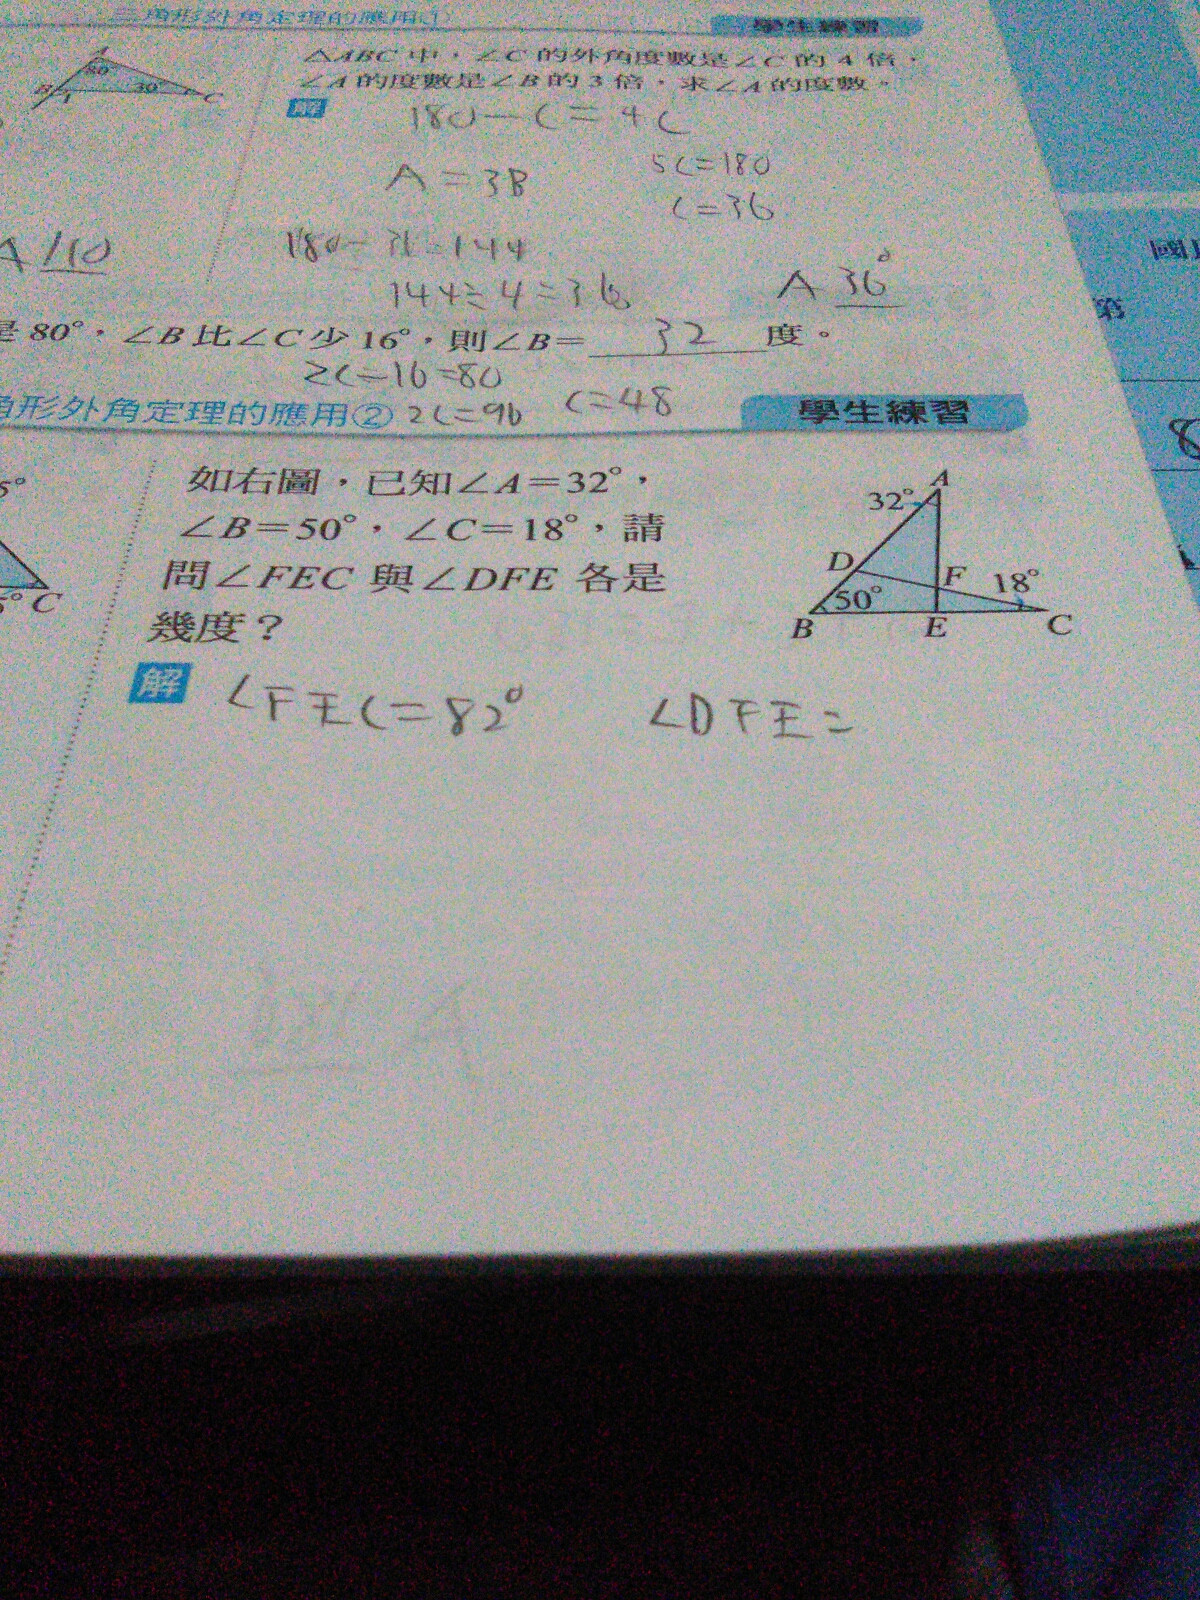 三角形外角定理的應用①
學生練習
△ABC 中，∠C 的外角度數是∠C 的 4 倍，
∠A 的度數是∠B 的 3 倍，求∠A 的度數。
A
80°
30°
B
1
C
解
180-C=4C
5C=180
A=3B
C=36
180-36=144
144÷4=36
A 36°
A 110
是 80°，∠B 比∠C 少 16°，則∠B= 32 度。
2C-16=80
角形外角定理的應用② 2C=96 C=48
學生練習
5°
5° C
如右圖，已知∠A=32°，
∠B=50°，∠C=18°，請
問∠FEC 與∠DFE 各是
幾度？
A
32°
D
F 18°
50°
B E C
解
∠FEC=82° ∠DFE=
第
8